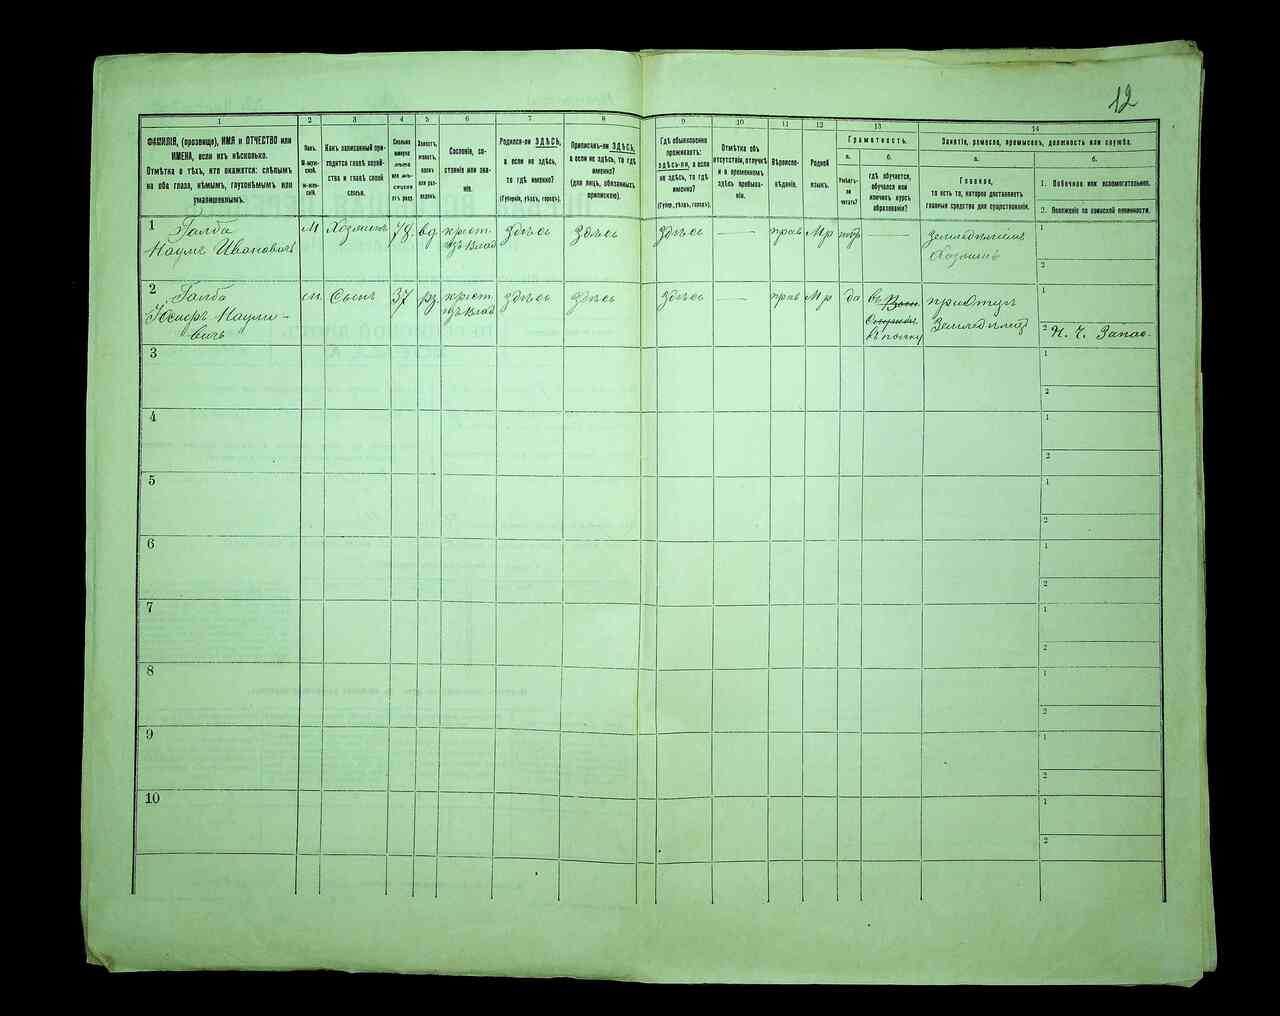 12
1
2
3
4
5
6
7
8
9
10
11
12
13
14
ФАМИЛІЯ, (прозвище), ИМЯ и ОТЧЕСТВО или
ИМЕНА, если ихъ нѣсколько.
Отмѣтка о тѣхъ, кто окажется: слѣпымъ
на оба глаза, нѣмымъ, глухонѣмымъ или
умалишеннымъ.
Полъ.
М-муж-
ской.
Ж-жен-
скій.
Какъ записанный при-
ходится главѣ хозяй-
ства и главѣ своей
семьи.
Сколько
минуло
лѣтъ
или мѣ-
сяцевъ
отъ роду.
Холостъ,
женатъ,
вдовъ
или раз-
веденъ.
Сословіе, со-
стояніе или зва-
ніе.
Родился-ли ЗДѢСЬ,
а если не здѣсь,
то гдѣ именно?
(Губернія, уѣздъ, городъ).
Приписанъ-ли ЗДѢСЬ,
а если не здѣсь, то гдѣ
именно?
(для лицъ, обязанныхъ
припискою).
Гдѣ обыкновенно
проживаетъ:
здѣсь-ли, а если
не здѣсь, то гдѣ
именно?
(Губер., уѣздъ, городъ).
Отмѣтка объ
отсутствіи, отлучкѣ
и о временномъ
здѣсь пребыва-
ніи.
Вѣроиспо-
вѣданіе.
Родной
языкъ.
Грамотность.
а.
Умѣетъ-
ли
читать?
б.
гдѣ обучается,
обучался или
кончилъ курсъ
образованія?
Занятіе, ремесло, промыселъ, должность или служба.
а.
Главное,
то есть то, которое доставляетъ
главныя средства для существованія.
б.
1. Побочное или вспомогательное.
2. Положеніе по воинской повинности.
1
Галба
Наумъ Ивановичъ
М
Хозяинъ
78
вд
крест.
изъ влад
здѣсь
здѣсь
здѣсь
—
прав
Мр
—
Земледѣліемъ
Хозяинъ
1
2
2
Галба
Іосифъ Науми-
вичъ
м.
Сынъ
37
крест.
изъ влад
здѣсь
здѣсь
здѣсь
—
прав
Мр
да
въ
въ полку
при отцѣ
Земледѣлецъ
1
2
Н. Ч. Запас.
3
1
2
4
1
2
5
1
2
6
1
2
7
1
2
8
1
2
9
1
2
10
1
2